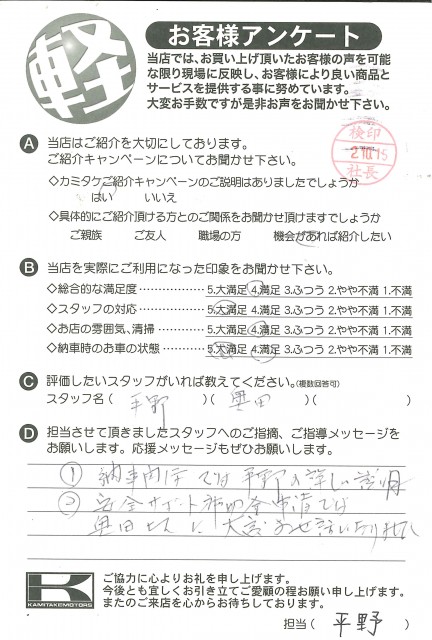 軽
お客様アンケート
当店では、お買い上げ頂いたお客様の声を可能
な限り現場に反映し、お客様により良い商品と
サービスを提供する事に努めています。
大変お手数ですが是非お声をお聞かせ下さい。
検印
2.10.15
社長
A 当店はご紹介を大切にしております。
ご紹介キャンペーンについてお聞かせ下さい。
◇カミタケご紹介キャンペーンのご説明はありましたでしょうか
はい いいえ
◇具体的にご紹介頂ける方とのご関係をお聞かせ頂けますでしょうか
ご親族 ご友人 職場の方 機会があれば紹介したい
B 当店を実際にご利用になった印象をお聞かせ下さい。
◇総合的な満足度 5.大満足 4.満足 3.ふつう 2.やや不満 1.不満
◇スタッフの対応 5.大満足 4.満足 3.ふつう 2.やや不満 1.不満
◇お店の雰囲気、清掃 5.大満足 4.満足 3.ふつう 2.やや不満 1.不満
◇納車時のお車の状態 5.大満足 4.満足 3.ふつう 2.やや不満 1.不満
C 評価したいスタッフがいれば教えてください。(複数回答可)
スタッフ名( 平野 )( 奥田 )( )
D 担当させて頂きましたスタッフへのご指摘、ご指導メッセージを
お願いします。応援メッセージもぜひお願いします。
① 納車 では平野の詳しい説明
② 安全サポート補助金申請では
奥田 に大変お世話になり
K
KAMITAKEMOTORS
ご協力に心よりお礼を申し上げます。
今後とも宜しくお引き立てご愛顧の程お願い申し上げます。
またのご来店を心からお待ちしております。
担当( 平野 )